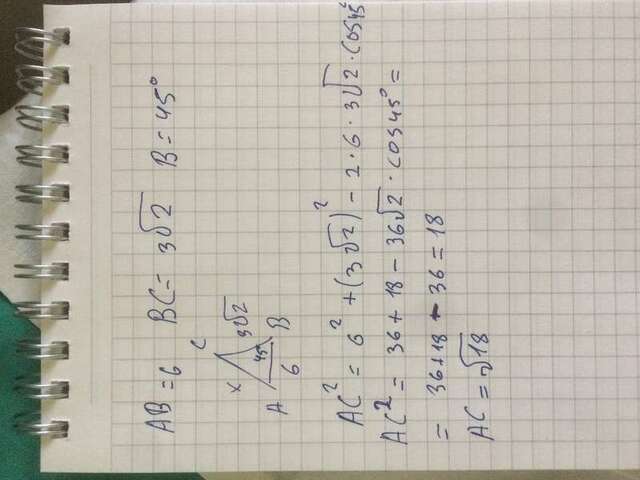 AB = 6 BC = 3√2 B = 45°
C
x 3√2
45°
A B
6
AC² = 6² + (3√2)² - 2 · 6 · 3√2 · cos45°
AC² = 36 + 18 - 36√2 · cos45° =
= 36 + 18 - 36 = 18
AC = √18